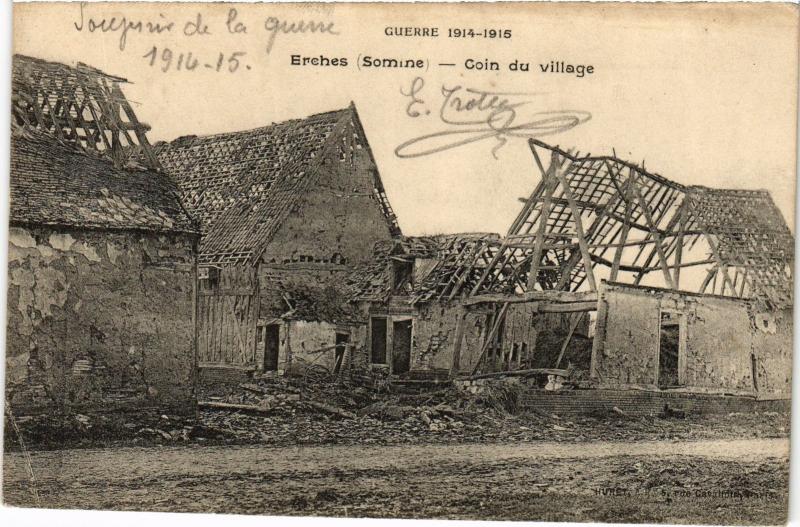 Souvenir de la guerre
1914-15.
GUERRE 1914-1915
Erches (Somme) — Coin du village